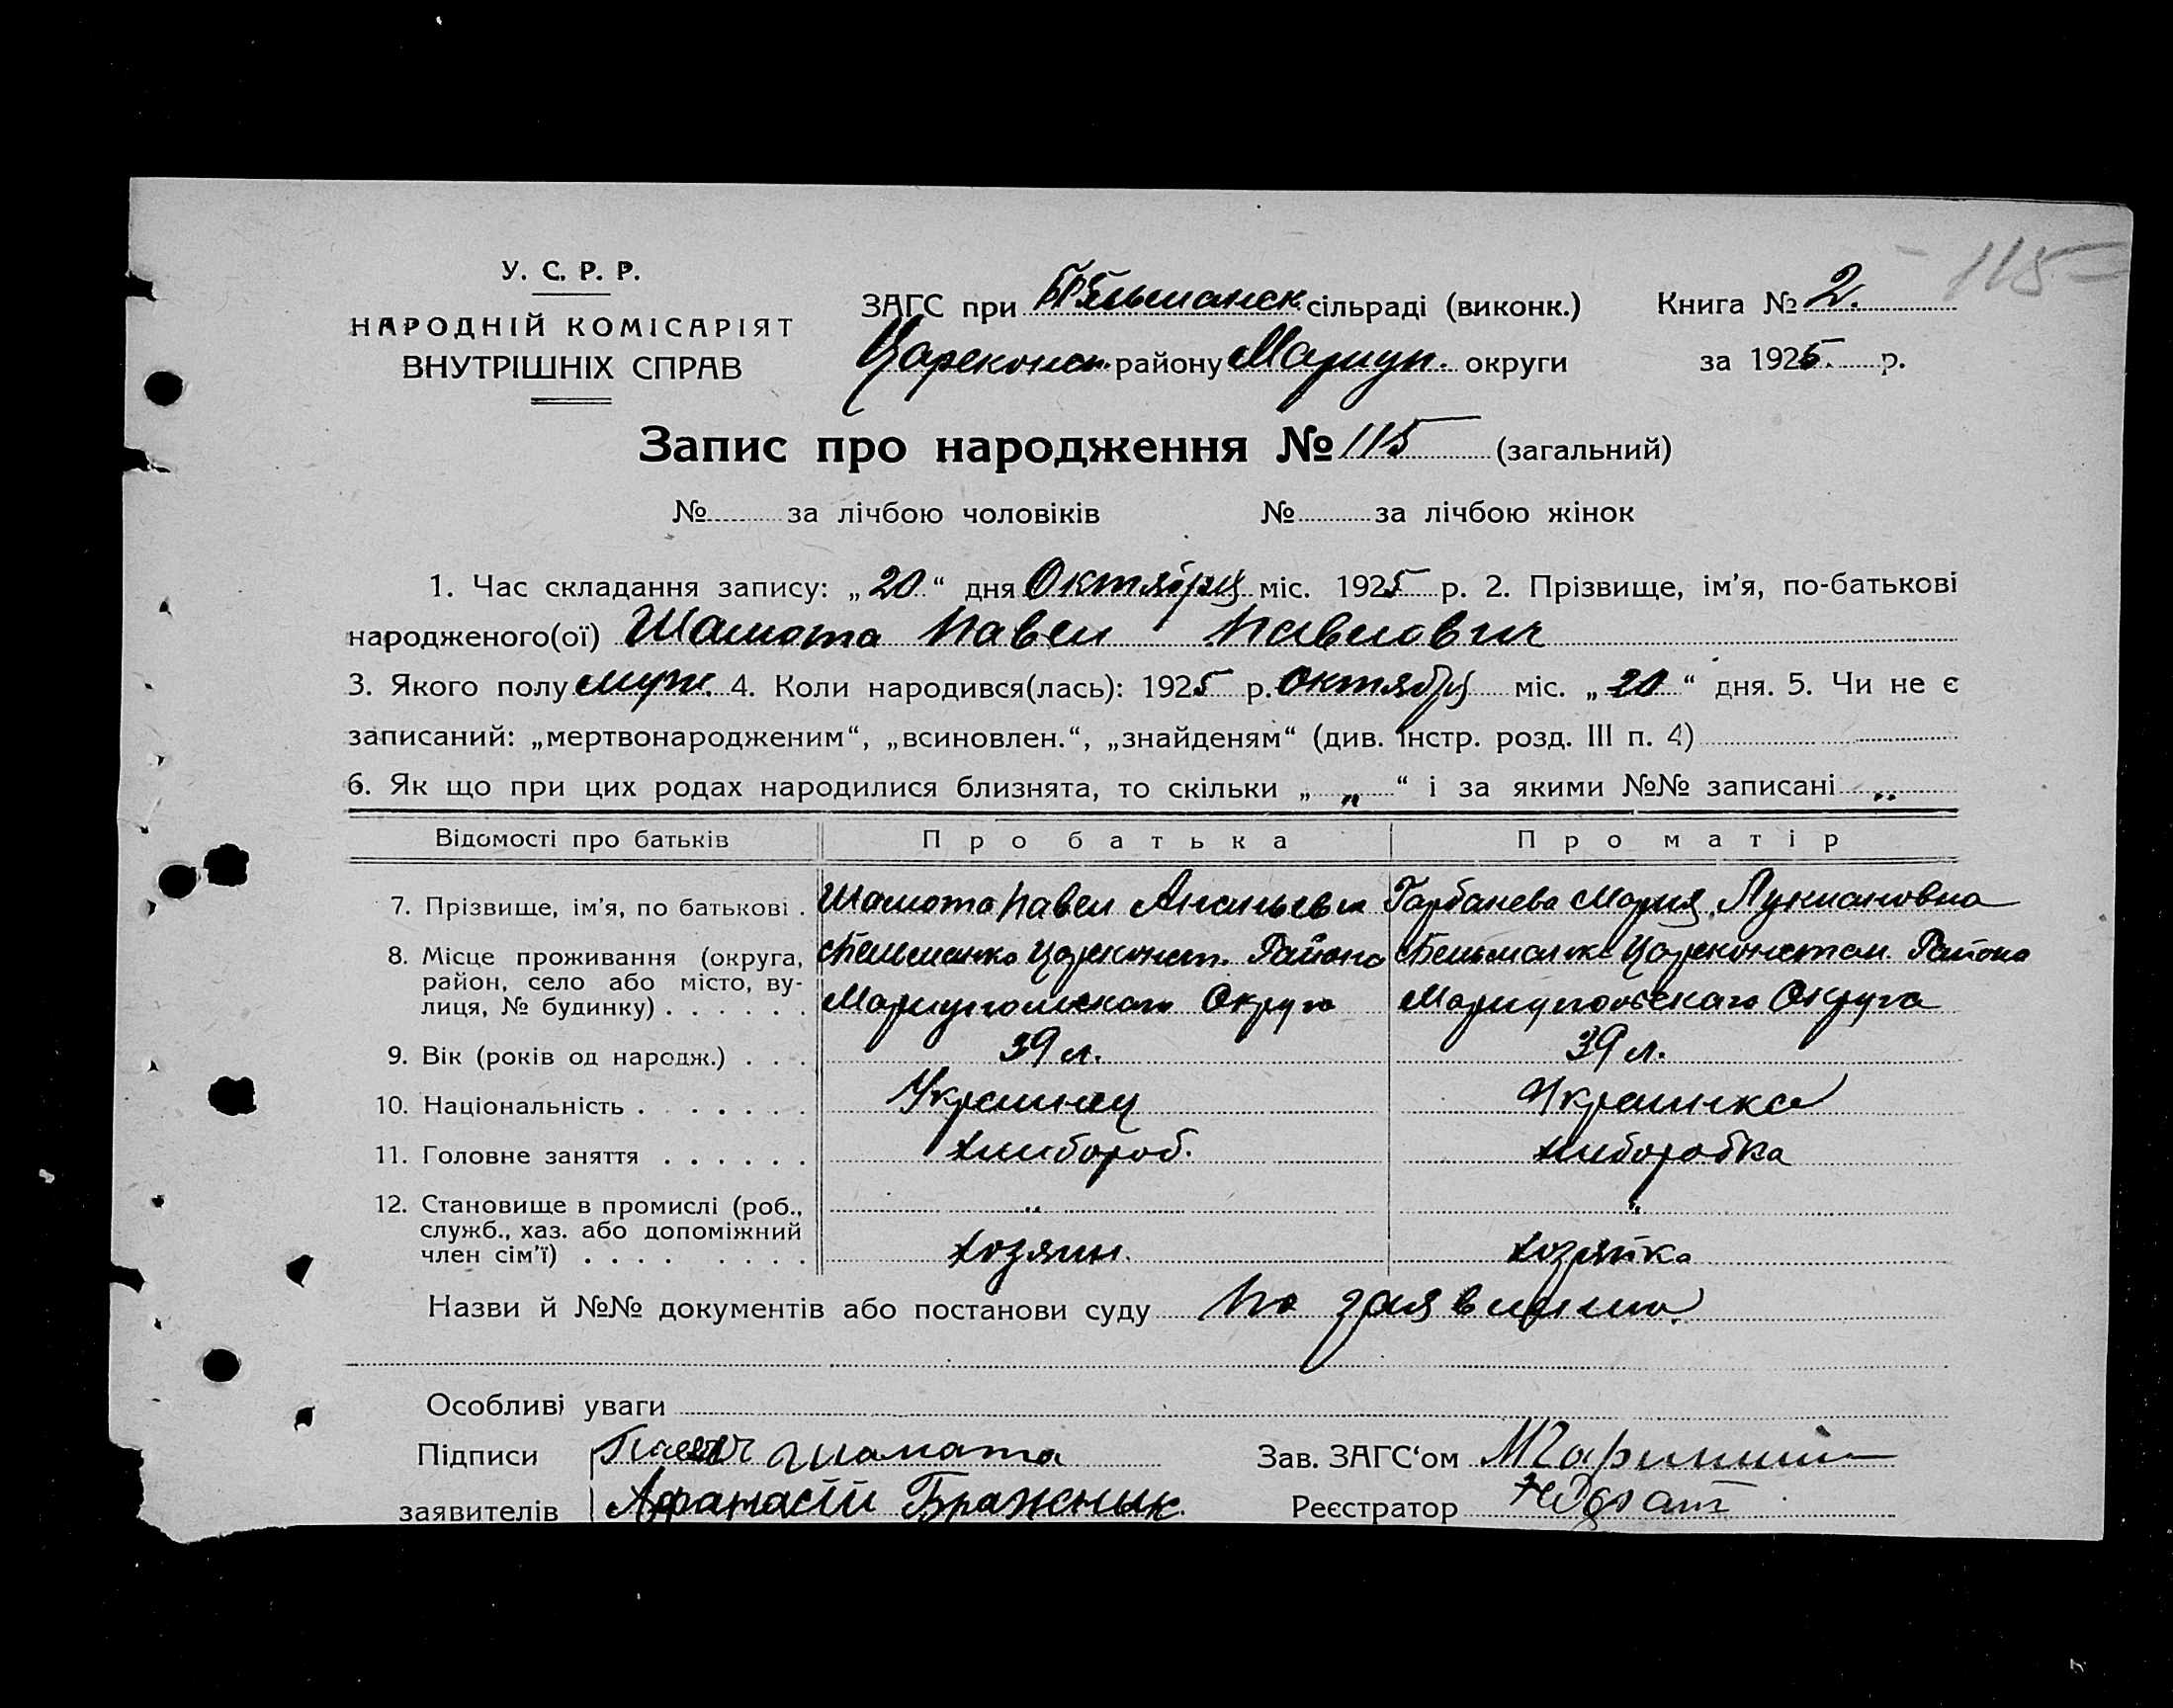 115
У. С. Р. Р.
НАРОДНІЙ КОМІСАРІЯТ
ВНУТРІШНІХ СПРАВ
ЗАГС при Бельманск. сільраді (виконк.) Книга № 2.
Цареконст. району Мариуп. округи за 1925 р.
Запис про народження № 115 (загальний)
№ за лічбою чоловіків № за лічбою жінок
1. Час складання запису: „20“ дня Октября міс. 1925 р. 2. Прізвище, ім’я, по-батькові
народженого(ої) Шамота Павел Павлович
3. Якого полу муж. 4. Коли народився(лась): 1925 р. Октября міс. „20“ дня. 5. Чи не є
записаний: „мертвонародженим“, „всиновлен.“, „знайденям“ (див. інстр. розд. III п. 4)
6. Як що при цих родах народилися близнята, то скільки „ „ “ і за якими №№ записані „
Відомості про батьків Про батька Про матір
7. Прізвище, ім’я, по батькові . Шамота Павел Ананьевич Горбанева Мария Лукиановна
8. Місце проживання (округа, район, село або місто, вулиця, № будинку) . . . . . . с Бельманка Цареконст. Района Мариупольскаго Округа с Бельманка Цареконстан Района Мариупольскаго Округа
9. Вік (років од народж.) . . . 39 л. 39 л.
10. Національність . . . . . . Украинец Украинка
11. Головне заняття . . . . . . хлибороб. хлиборобка
12. Становище в промислі (роб., служб., хаз. або допоміжний член сім’ї) . . . . . . . . „ хозяин. „ хозяйка
Назви й №№ документів або постанови суду по заявлению
Особливі уваги
Підписи Павел Шамота Зав. ЗАГС‘ом
заявителів Афанасій Бражнык Реєстратор